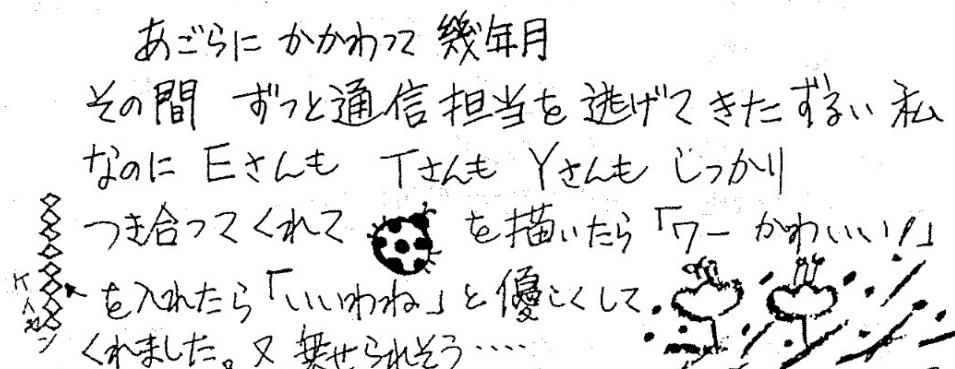 あごらに かかわって 幾年月
その間 ずっと通信担当を逃げてきたずるい私
なのに Eさんも Tさんも Yさんも じっかり
つき合ってくれて を描いたら「ワー かわいい!」
ケイセン
を入れたら「いいわね」と優しくして
くれました。又 乗せられそう‥‥‥